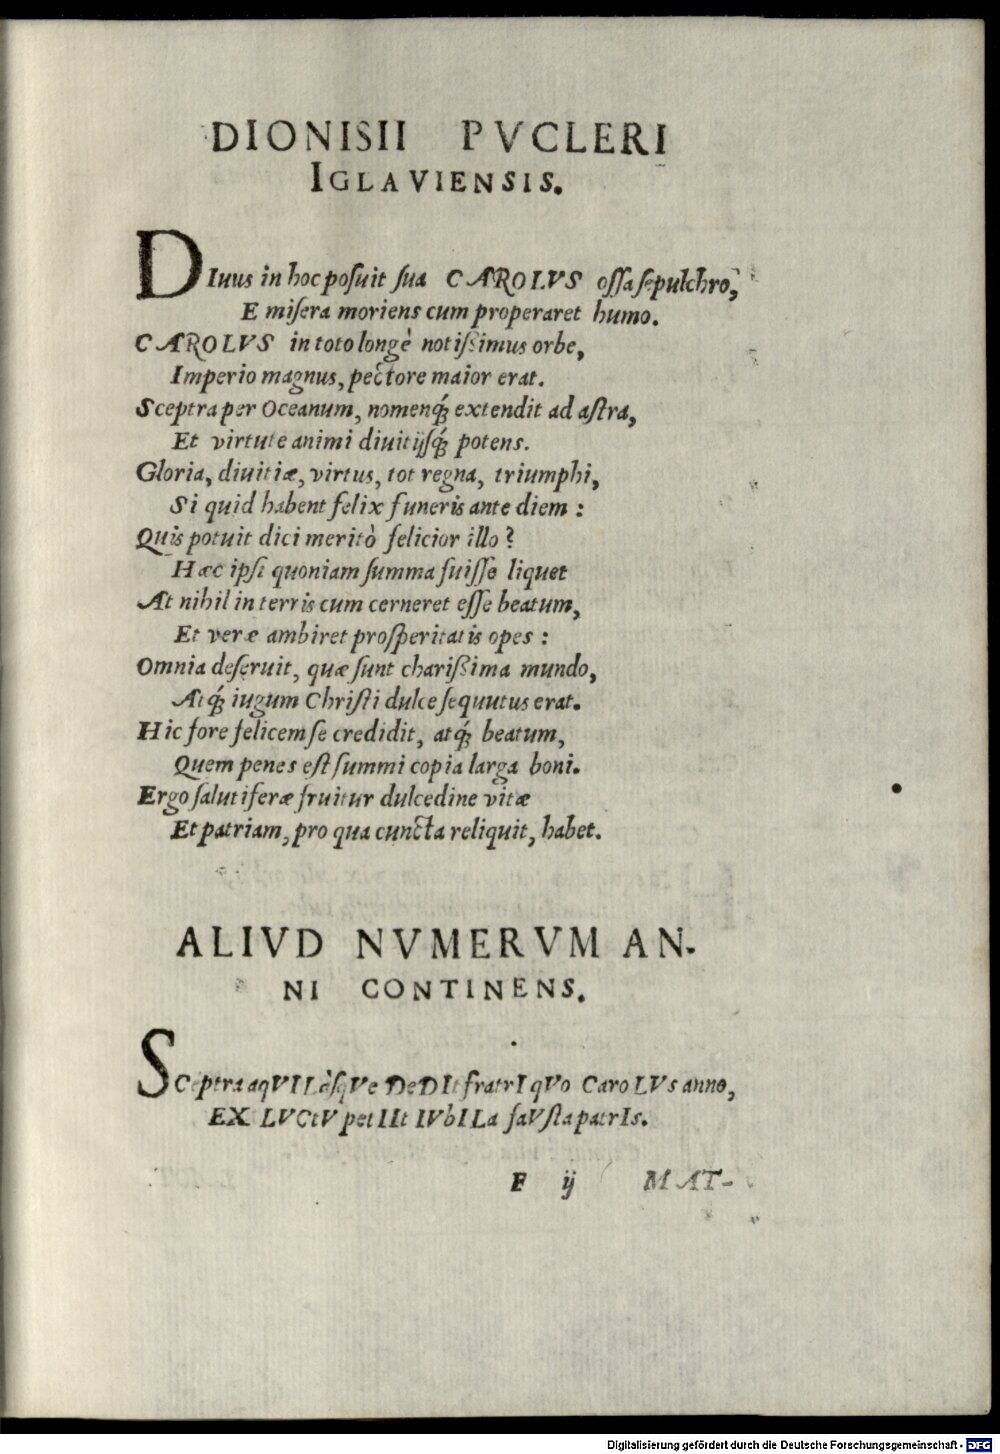 DIONISII PVCLERI
IGLAVIENSIS.
DIuus in hoc posuit sua CAROLVS ossa sepulchro,
E misera moriens cum properaret humo.
CAROLVS in toto longè notißimus orbe,
Imperio magnus, pectore maior erat.
Sceptra per Oceanum, nomenq́; extendit ad astra,
Et virtute animi diuitijsq́; potens.
Gloria, diuitiæ, virtus, tot regna, triumphi,
Si quid habent felix funeris ante diem:
Quis potuit dici meritò felicior illo?
Hæc ipsi quoniam summa fuisse liquet
At nihil in terris cum cerneret esse beatum,
Et veræ ambiret prosperitatis opes:
Omnia deseruit, quæ sunt charißima mundo,
Atq́; iugum Christi dulce sequutus erat.
Hic fore felicem se credidit, atq́; beatum,
Quem penes est summi copia larga boni.
Ergo salutiferæ fruitur dulcedine vitæ
Et patriam, pro qua cuncta reliquit, habet.
ALIVD NVMERVM AN-
NI CONTINENS.
SCeptra aqVILasqVe DeDIt fratrI qVo CaroLVs anno,
EX LVCtV petIIt IVbILa faVsta patrIs.
F ij MAT-
Digitalisierung gefördert durch die Deutsche Forschungsgemeinschaft - DFG